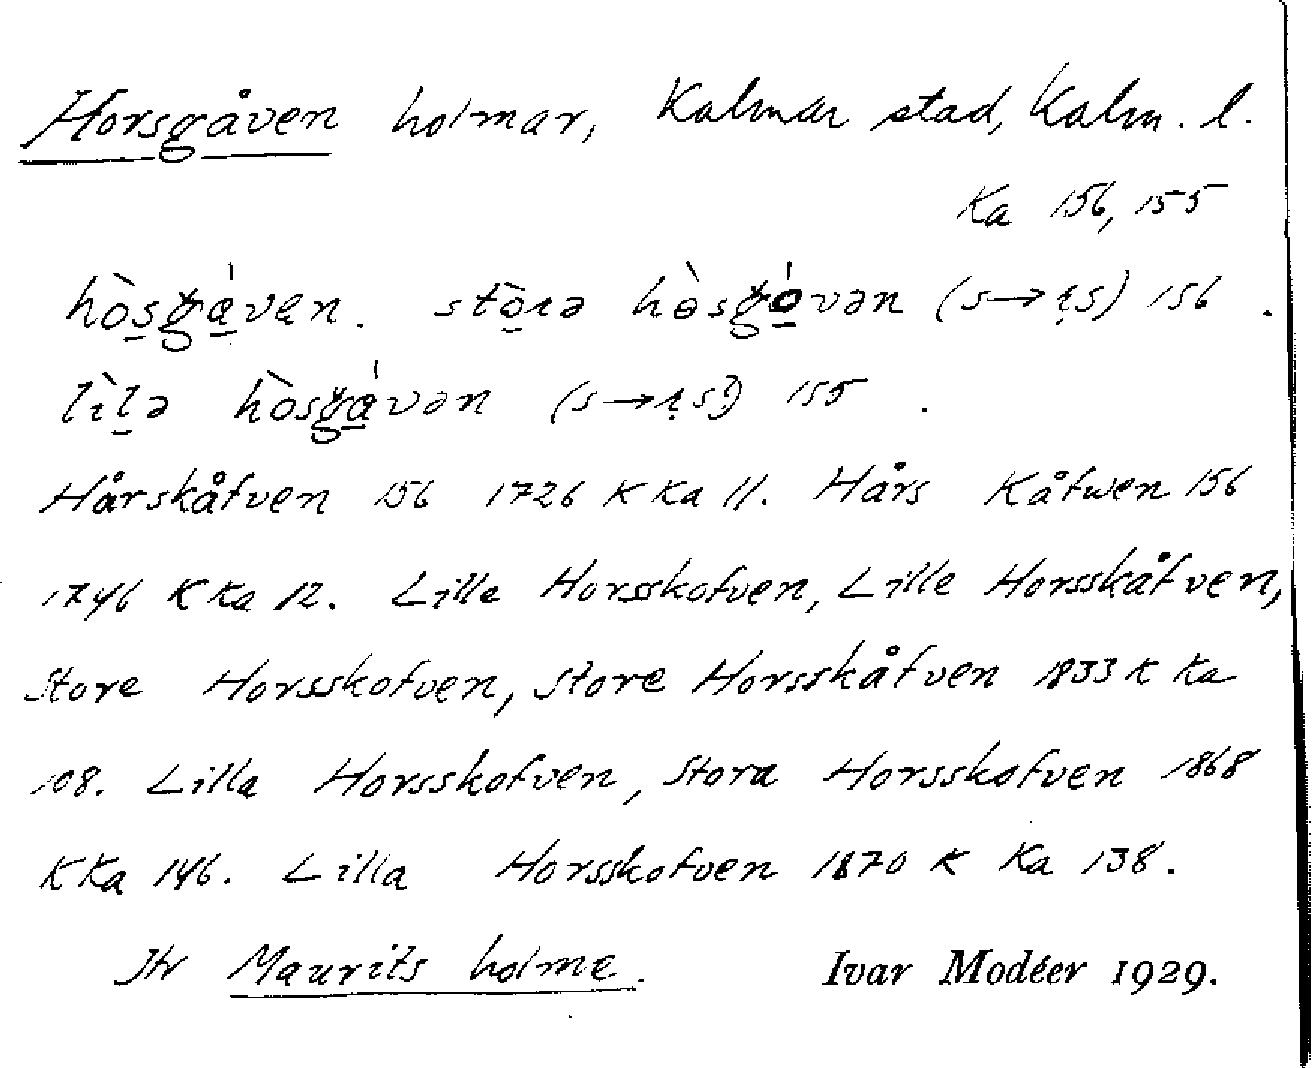 Horsgåven holmar, Kalmar stad, Kalm. l.
Ka 156, 155
hòsgávən. stòrə hòsgóvən (s→rs) 156.
lìlə hòsgávən (s→rs?) 155.
Hårskåfven 156 1726 K Ka 11. Hårs Kåfwen 156
1746 K Ka 12. Lilla Horsskofven, Lille Horsskåfven,
Store Horsskofven, Store Horsskåfven 1833 K Ka
108. Lilla Horsskofven, Stora Horsskofven 1868
K Ka 146. Lilla Horsskofven 1870 K Ka 138.
Jfr Maurits holme. Ivar Modéer 1929.